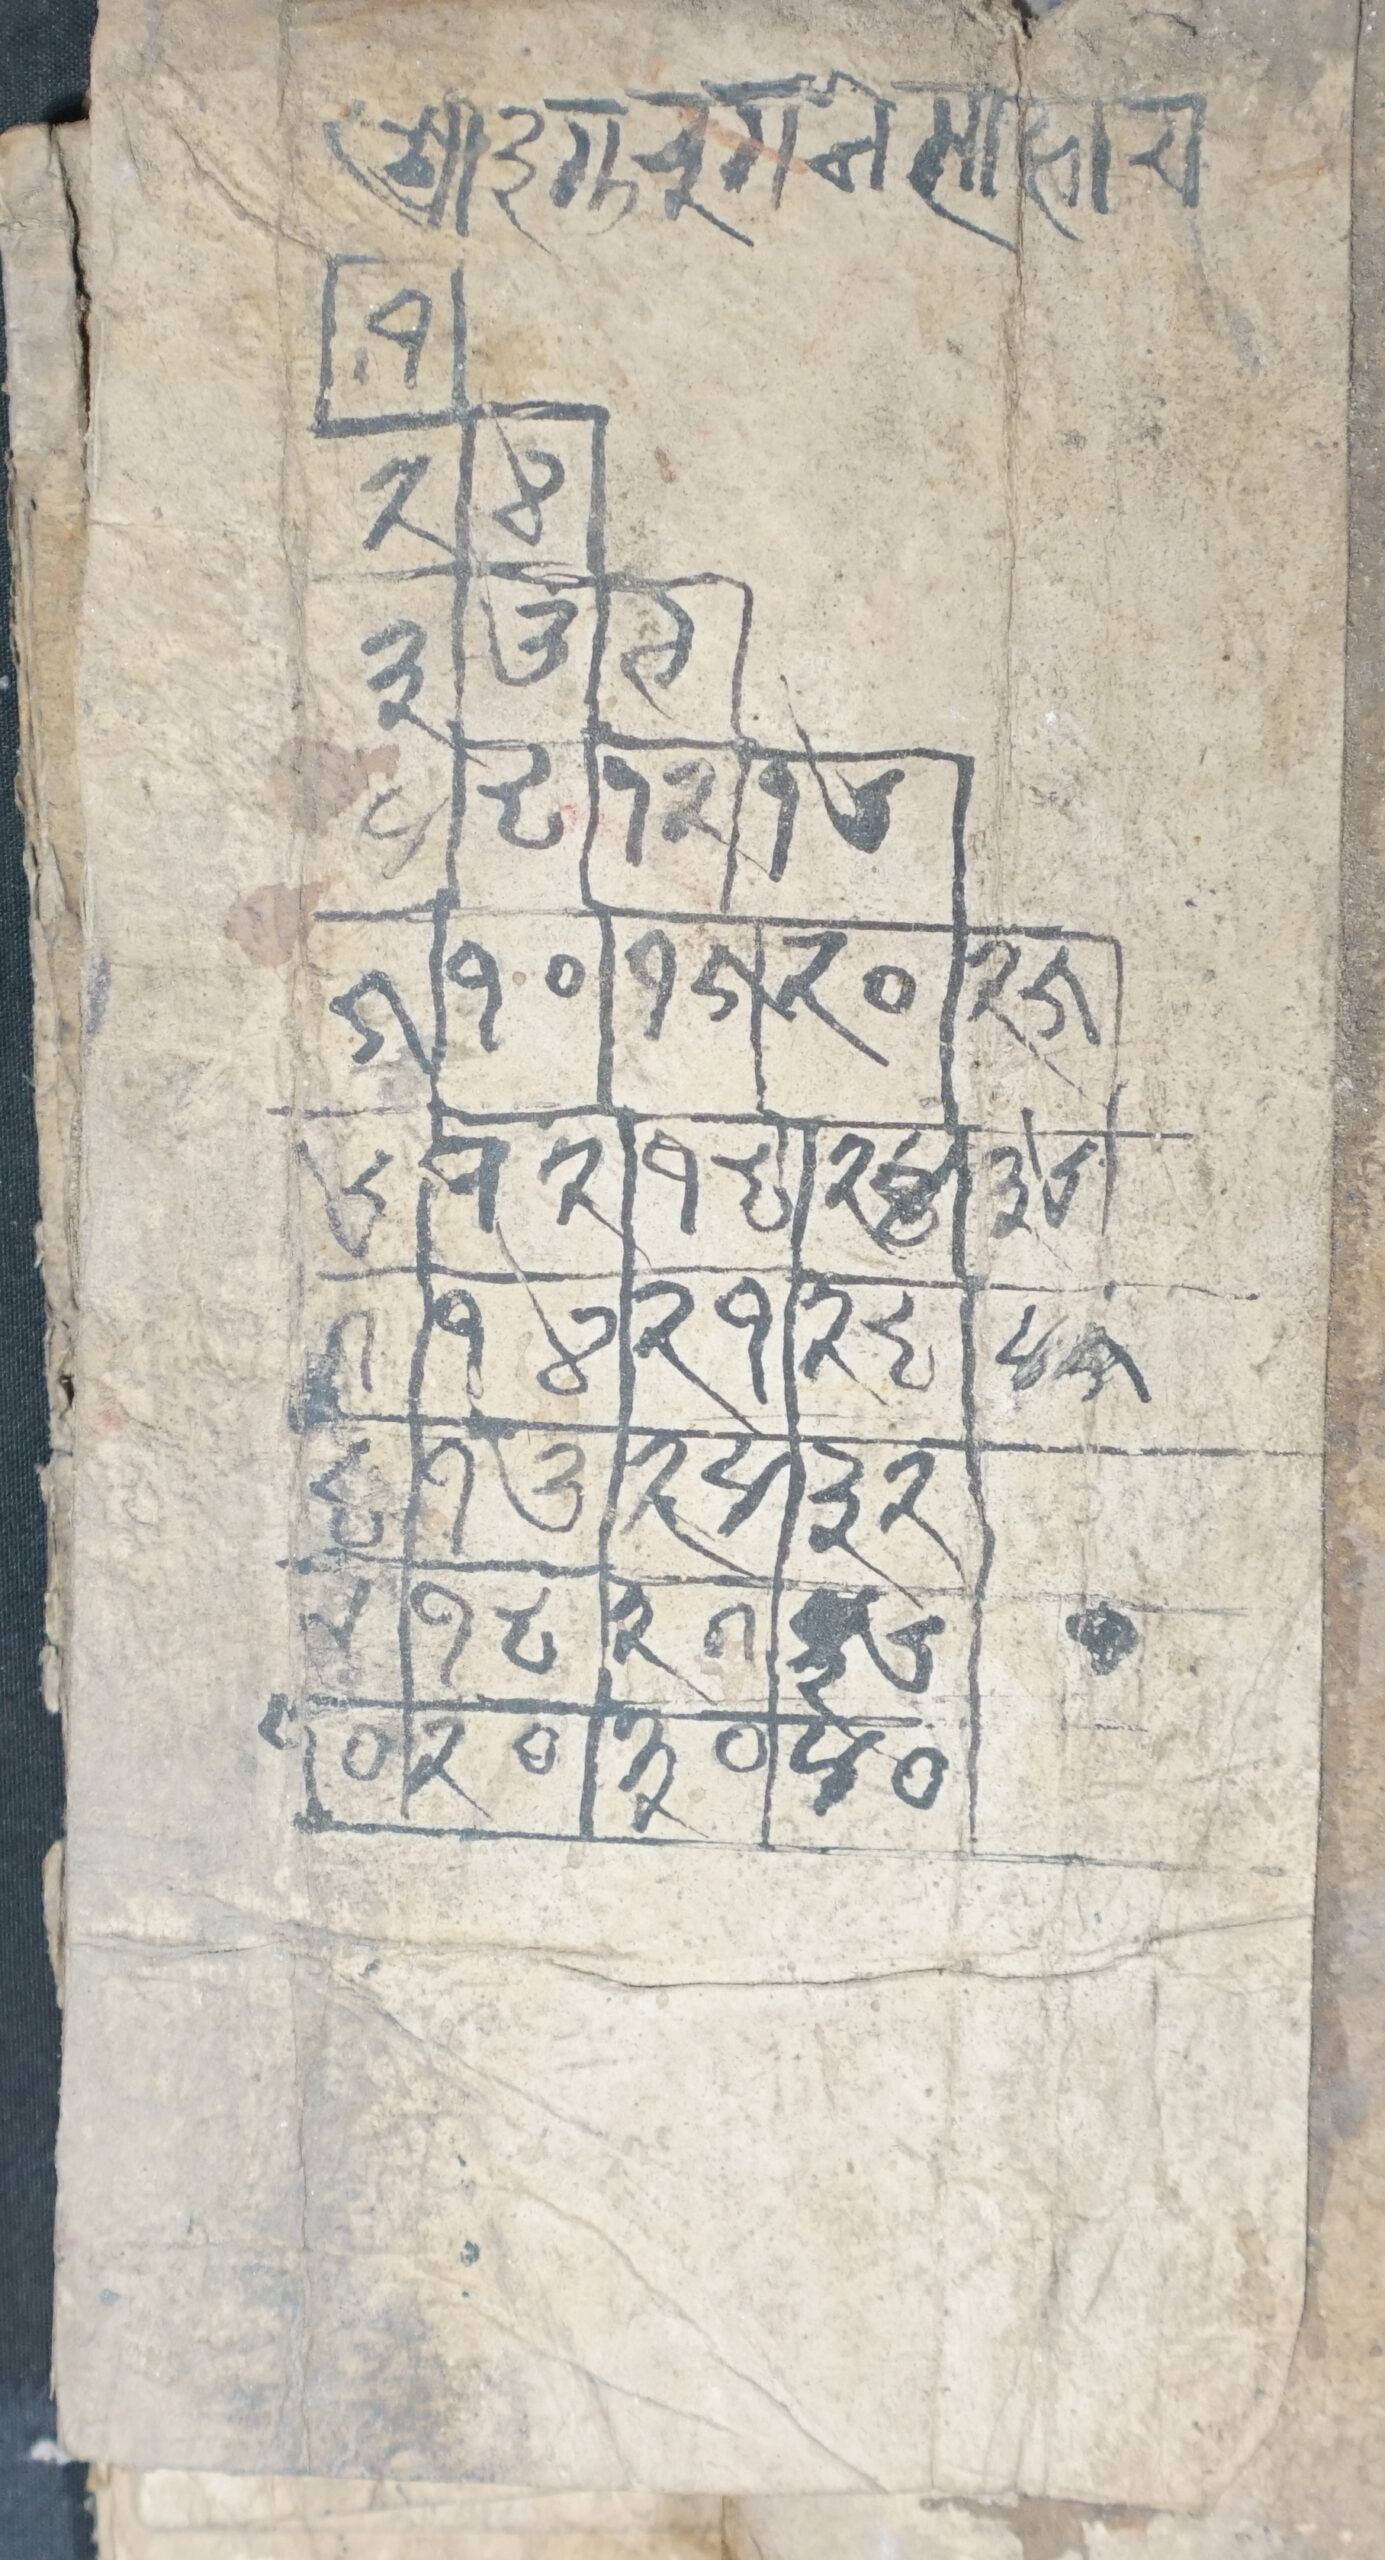 श्री३गुरूगनेसाहाय
१
२ ४
३ ६ ९
४ ८ १२ १६
५ १० १५ २० २५
६ १२ १८ २४ ३६
७ १४ २१ २८
८ १६ २४ ३२
९ १८ २७ ३६
१० २० ३० ४०